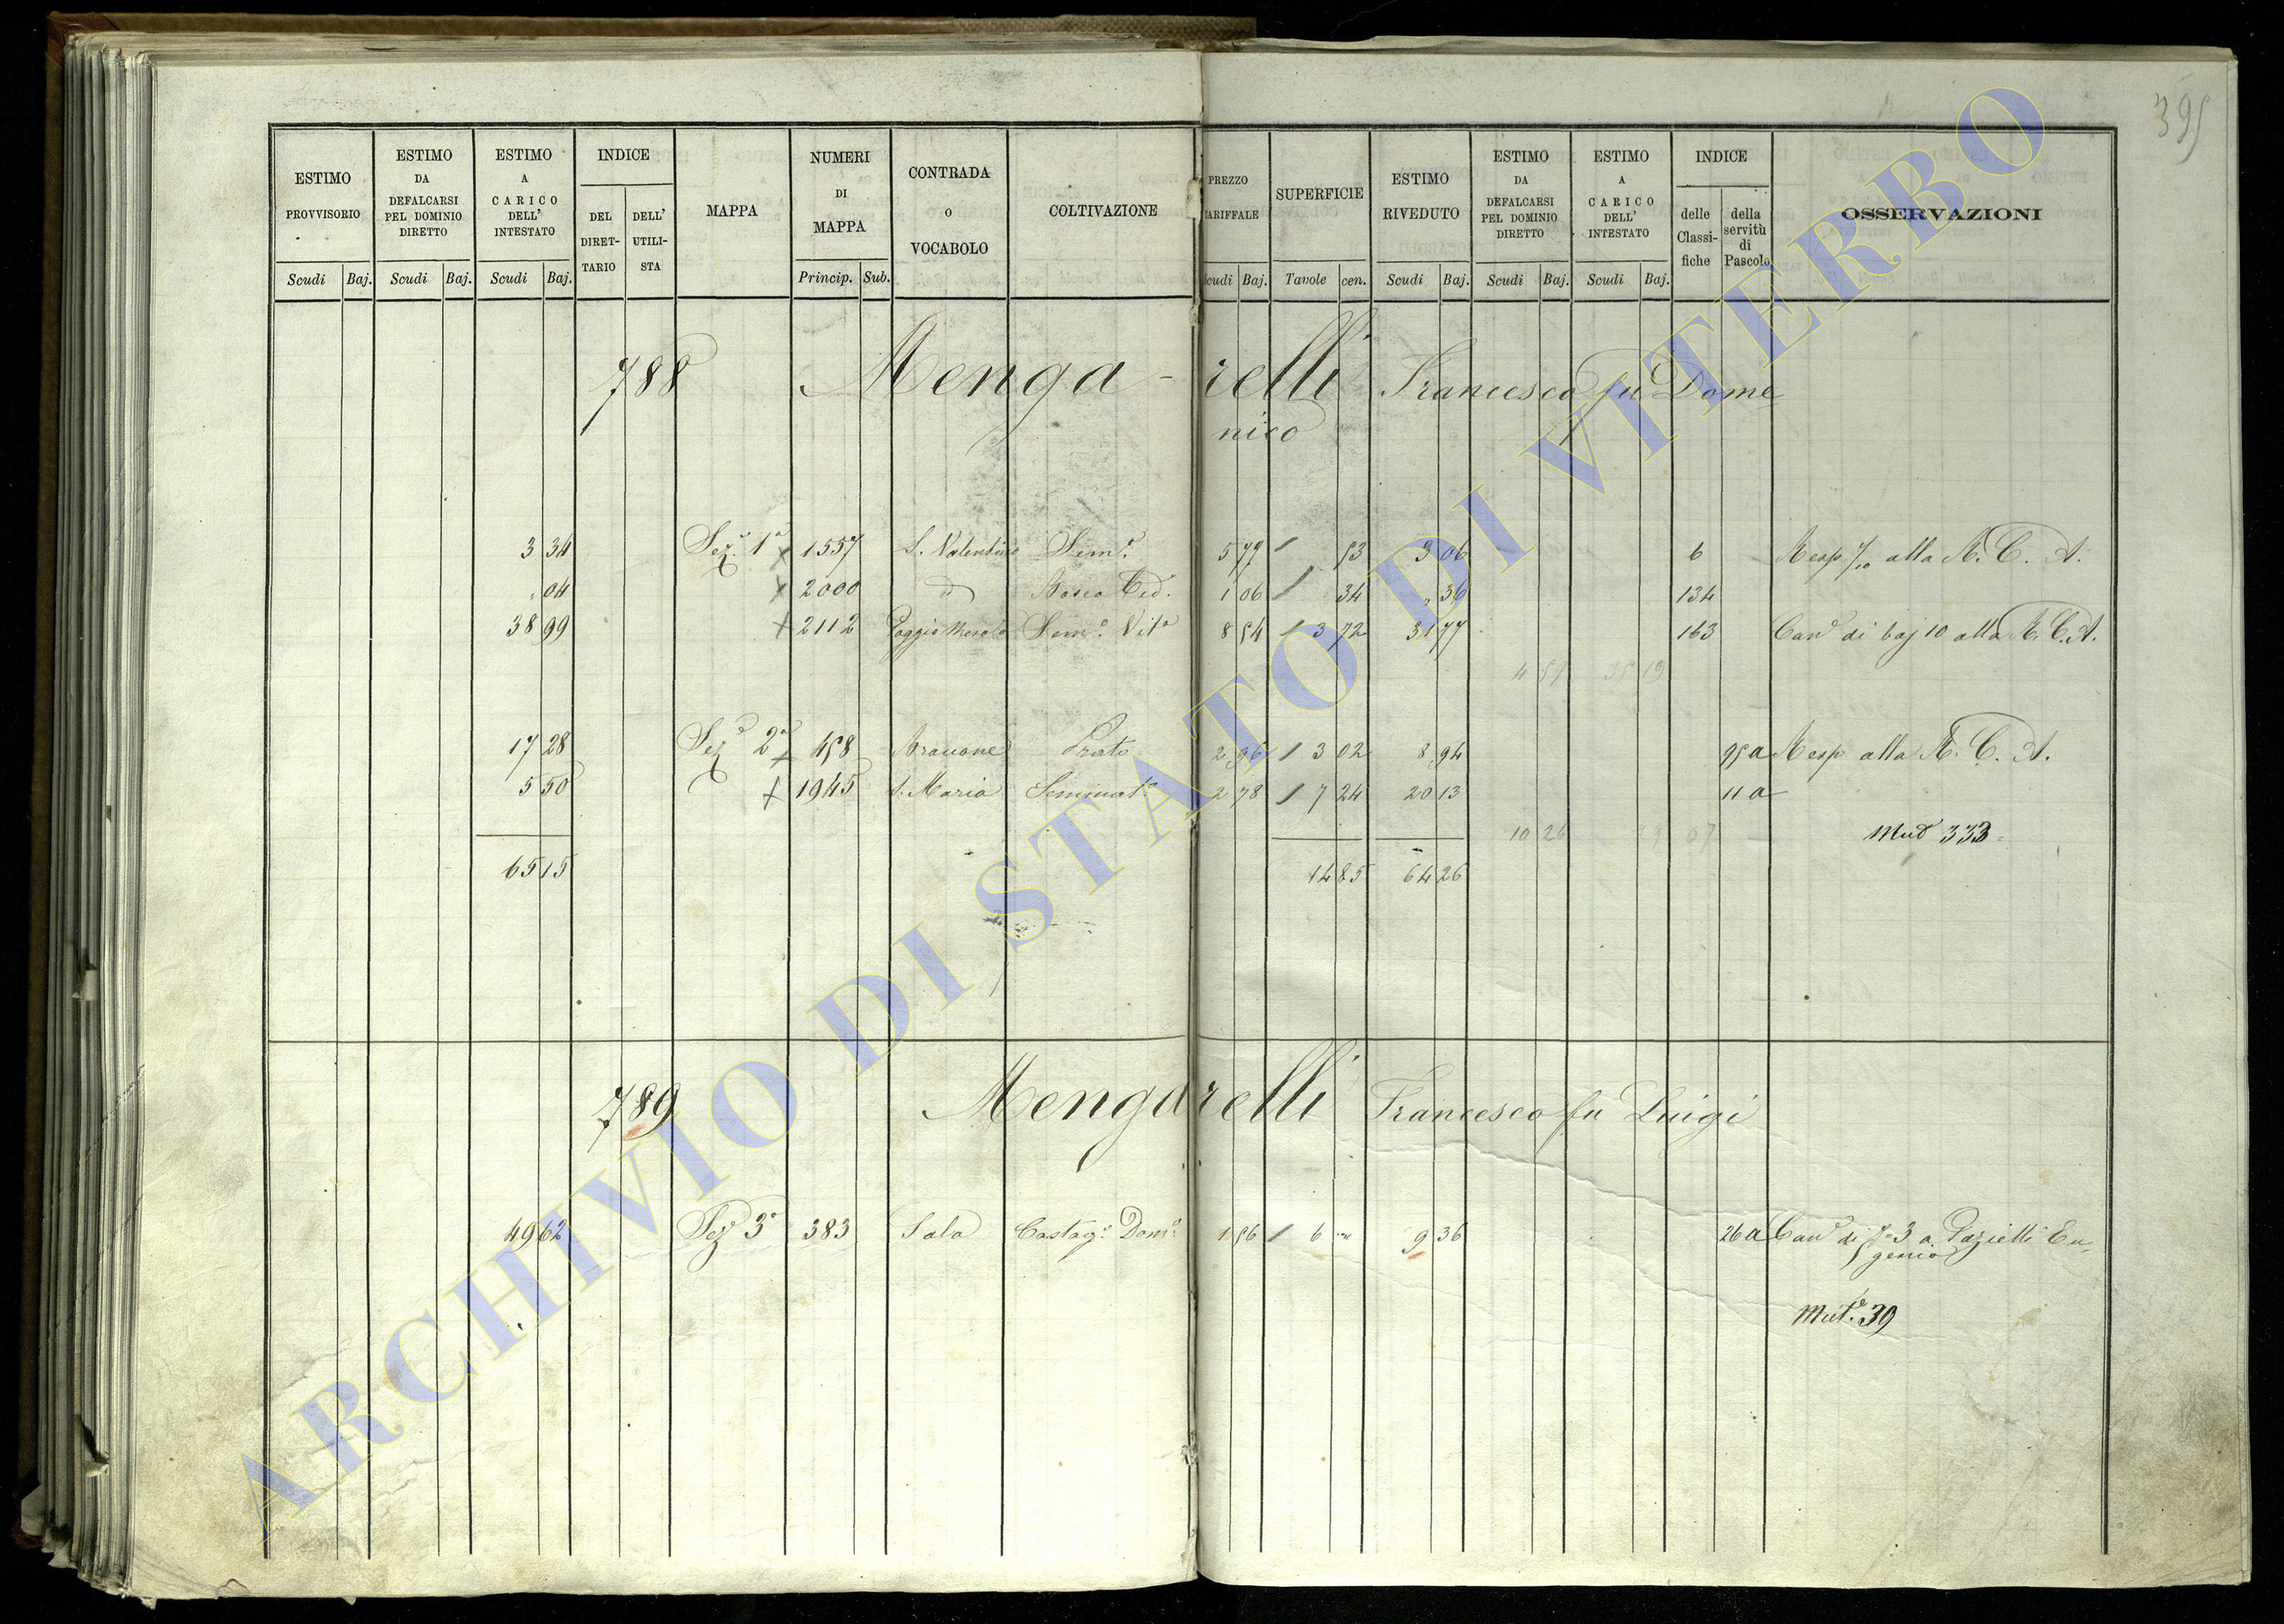 395
ESTIMO PROVVISORIO
ESTIMO DA DEFALCARSI PEL DOMINIO DIRETTO
ESTIMO A CARICO DELL' INTESTATO
INDICE
DEL DIRET-TARIO
DELL' UTILI-STA
MAPPA
NUMERI DI MAPPA
CONTRADA O VOCABOLO
COLTIVAZIONE
PREZZO TARIFFALE
SUPERFICIE
ESTIMO RIVEDUTO
ESTIMO DA DEFALCARSI PEL DOMINIO DIRETTO
ESTIMO A CARICO DELL' INTESTATO
INDICE
delle Classi-fiche
della servitù di Pascolo
OSSERVAZIONI
Scudi Baj. Scudi Baj. Scudi Baj. Princip. Sub. Scudi Baj. Tavole cen. Scudi Baj. Scudi Baj. Scudi Baj.
788 Menga-relli Francesco fu Dome
nico
3 34 Sez.e 1a x 1557 S. Valentino Sem.o 5 77 / 53 3 06 6 Resp 7/10 alla R. C. A.
" 04 x 2000 " Bosco Ced. 1 06 / 34 " 36 134
38 99 x 2112 Poggio Sem.o Vit.o 8 54 / 3 72 31 77 163 Can.e di baj 10 alla R. C. A.
4 59 35 19
17 28 Sez.e 2a x 458 Bravone Prato 2 96 / 3 02 8 94 95 a Resp alla R. C. A.
5 50 x 1945 S. Maria Seminat.o 2 78 / 7 24 20 13 11 a
10 26 19 07 Mut.e 333
65 15 14 85 64 26
789 Mengarelli Francesco fu Luigi
49 62 Sez.e 3a 383 Sala Castag.o Dom.o 1 56 / 6 " 9 36 26 a Can.e di 3 a Pazielli Eu
genio
Mut.e 39
ARCHIVIO DI STATO DI VITERBO